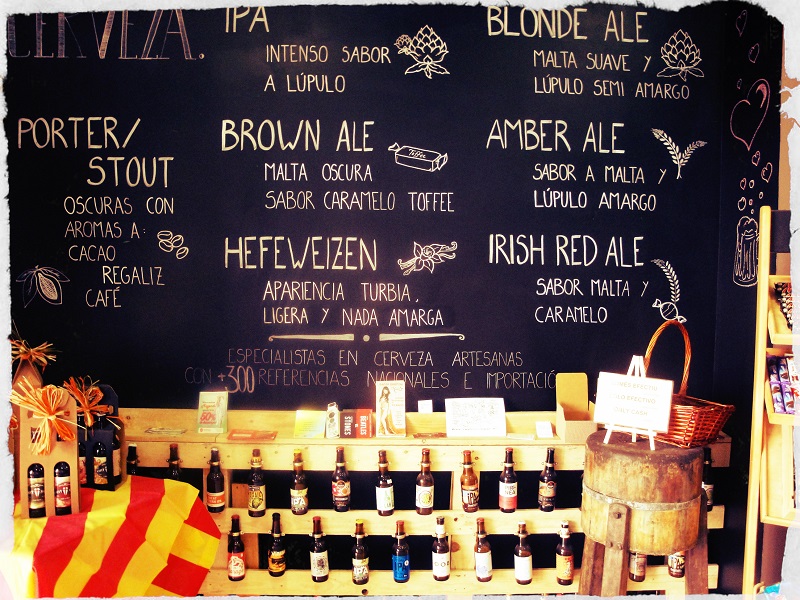 CERVEZA.
IPA
INTENSO SABOR
A LÚPULO
BLONDE ALE
MALTA SUAVE Y
LÚPULO SEMI AMARGO
PORTER/
STOUT
OSCURAS CON
AROMAS A:
CACAO
REGALIZ
CAFÉ
BROWN ALE
MALTA OSCURA
SABOR CARAMELO TOFFEE
Toffee
AMBER ALE
SABOR A MALTA Y
LÚPULO AMARGO
HEFEWEIZEN
APARIENCIA TURBIA,
LIGERA Y NADA AMARGA
IRISH RED ALE
SABOR MALTA Y
CARAMELO
ESPECIALISTAS EN CERVEZA ARTESANAS
CON +300 REFERENCIAS NACIONALES E IMPORTACIÓ
ONLY CASH
IPA